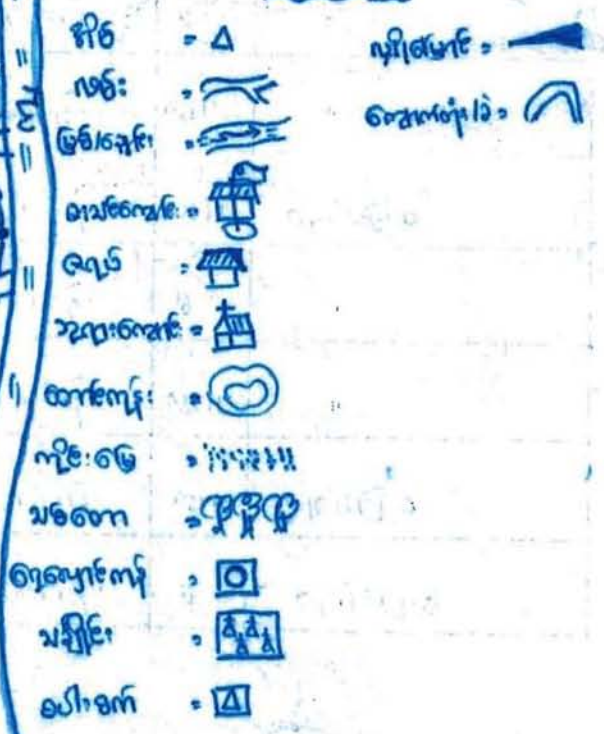 အိမ် =
လမ်း =
မြစ်/ချောင်း =
စာသင်ကျောင်း =
ဇရပ် =
ဘုရားကျောင်း =
တောင်ကုန်း =
ကိုင်းမြေ =
သစ်တော =
ရေလှောင်ကန် =
သင်္ချိုင်း =
စပါးစက် =
လျှိုမြောင် =